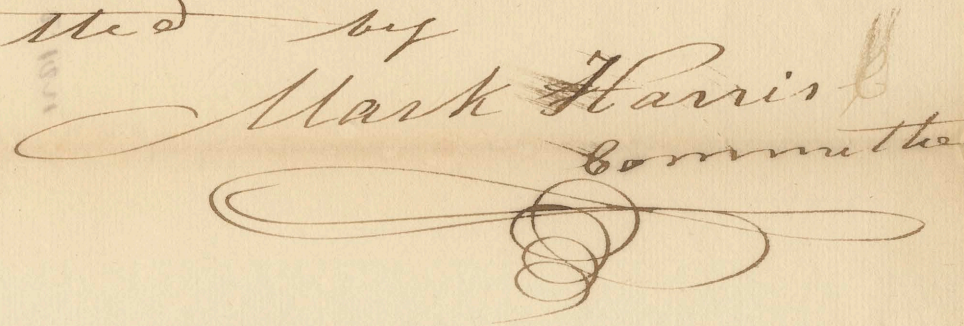 tted by
Mark Harris
Committe